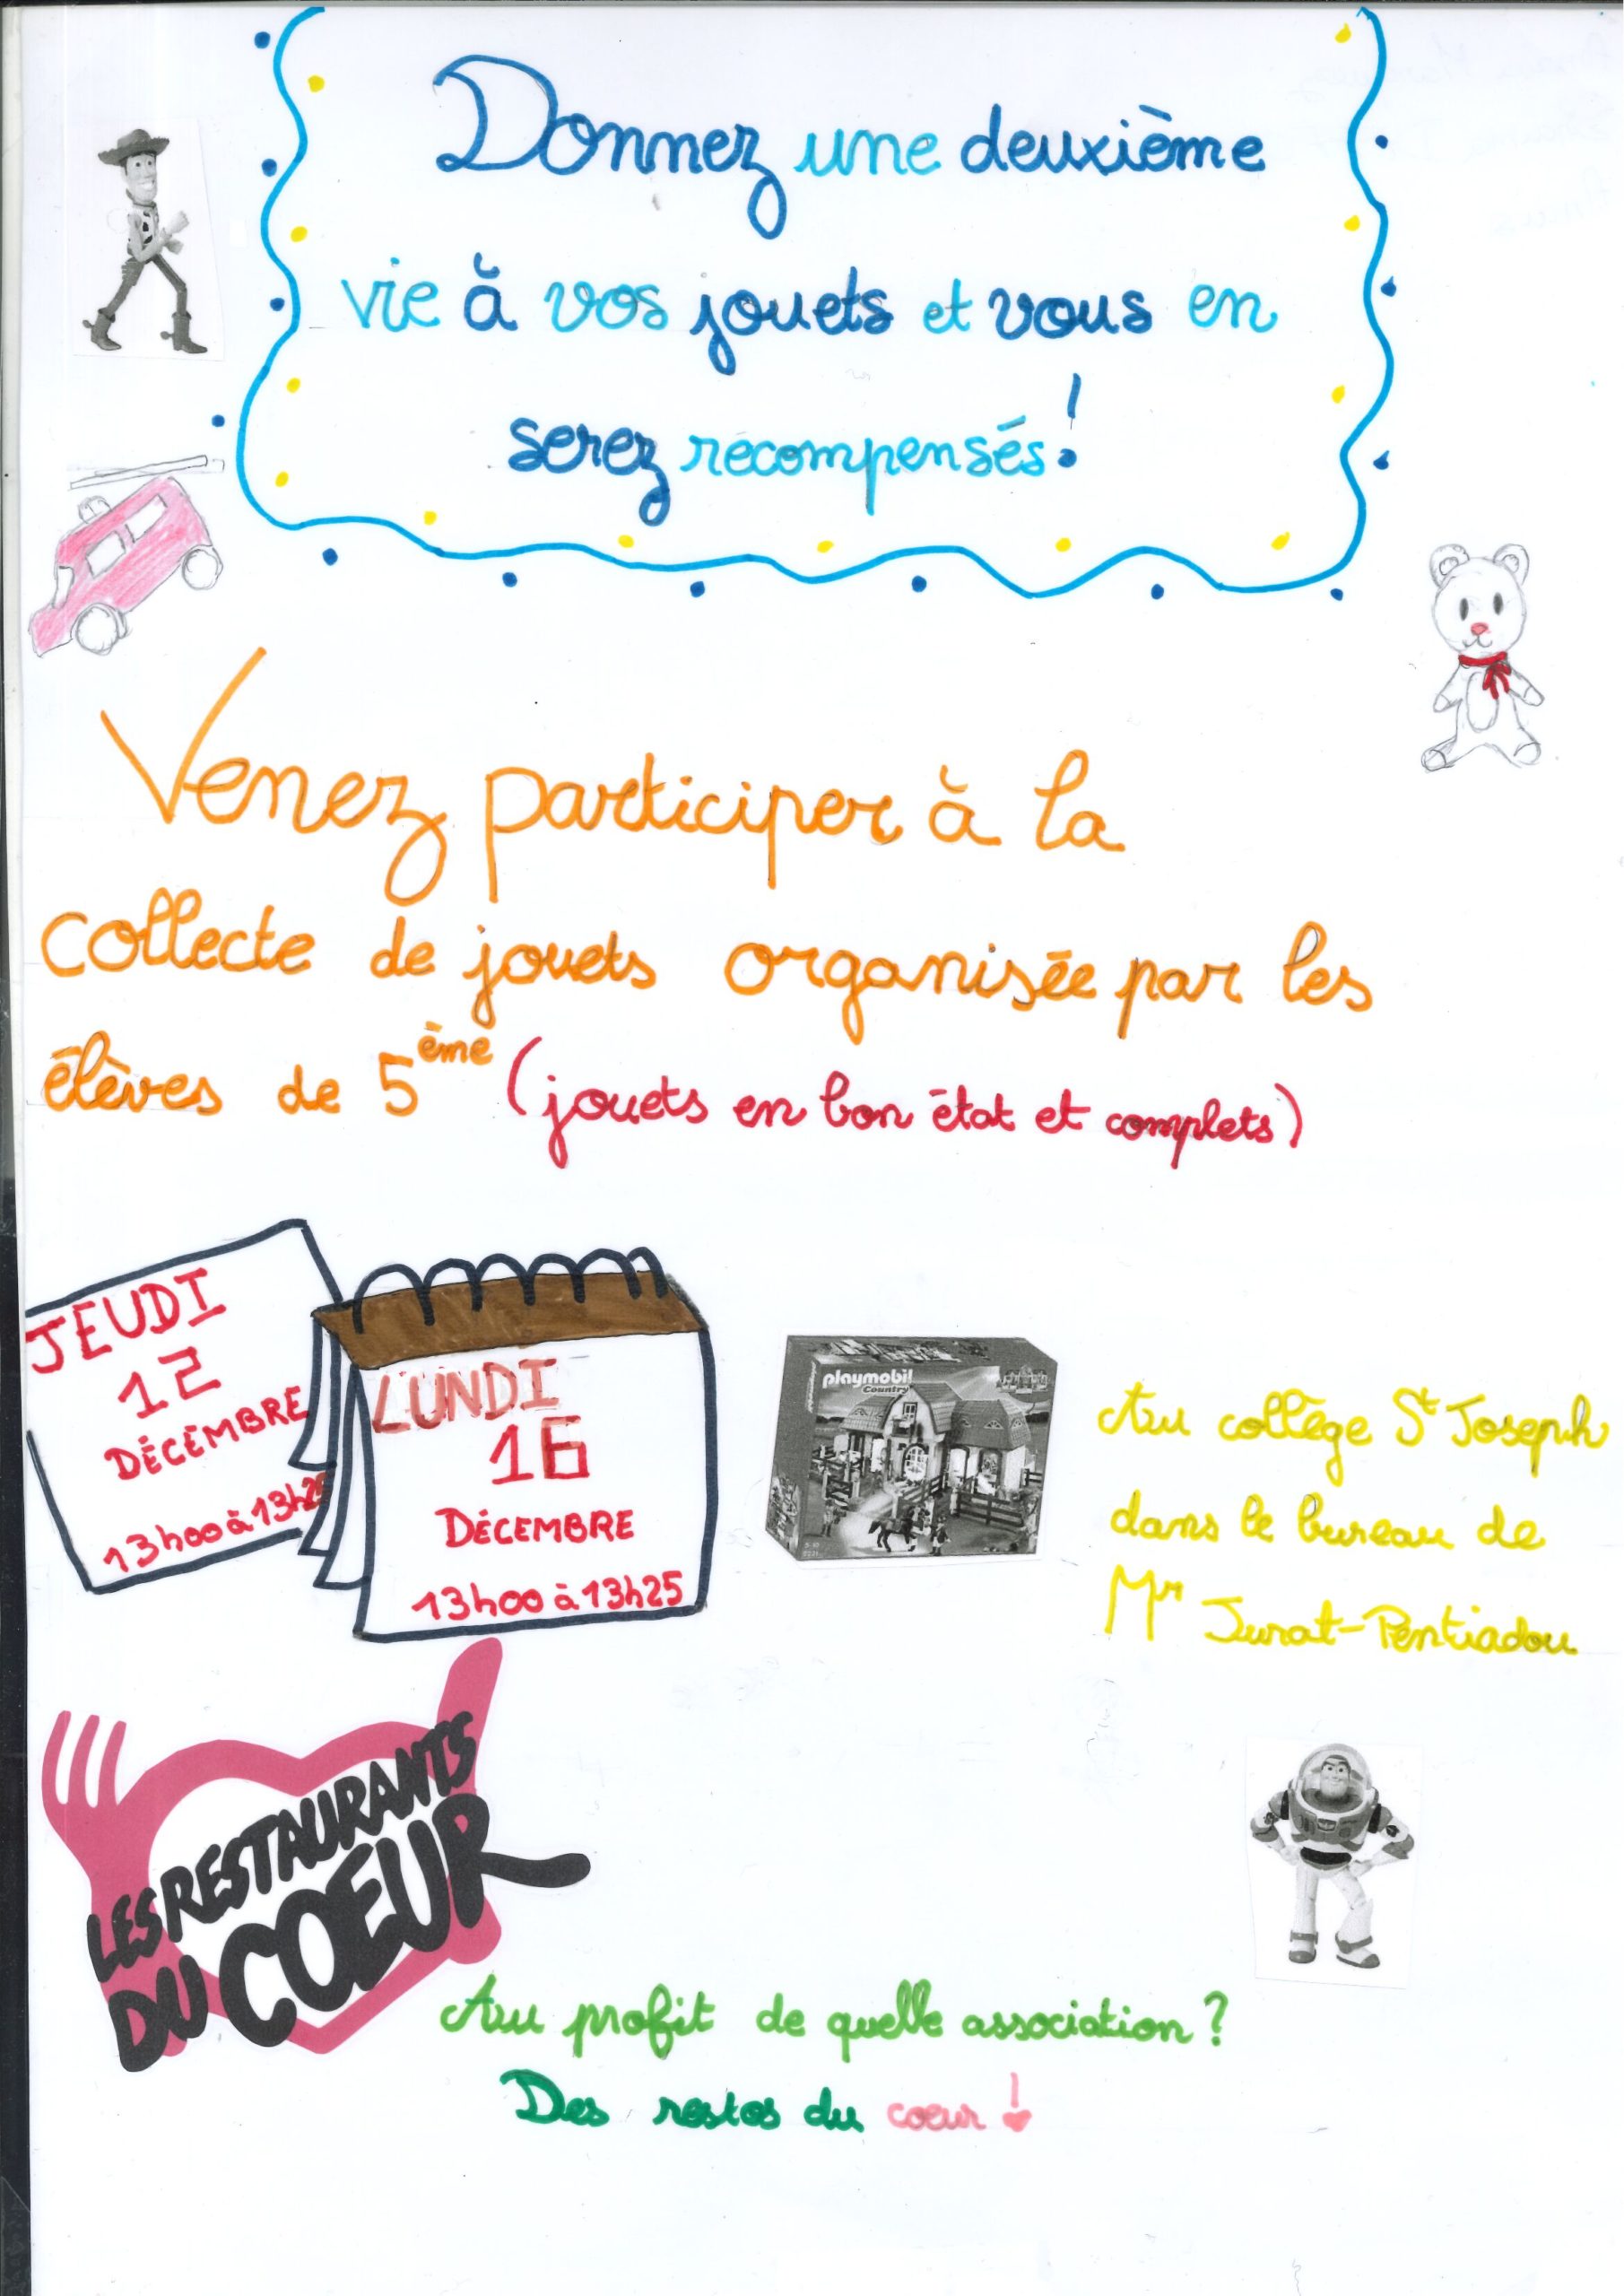 Donnez une deuxième
vie à vos jouets et vous en
serez récompensés!
Venez participer à la
collecte de jouets organisée par les
élèves de 5ème (jouets en bon état et complets)
JEUDI
12
DÉCEMBRE
13h00 à 13h25
LUNDI
16
DÉCEMBRE
13h00 à 13h25
playmobil
Country
Au collège St Joseph
dans le bureau de
Mr Jurat-Pentiadou
LES RESTAURANTS
DU COEUR
Au profit de quelle association?
Des restos du coeur!